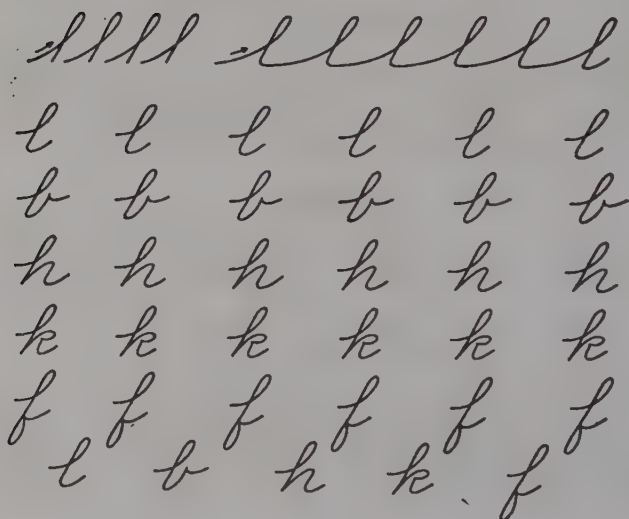 llll llllll
l l l l l l
b b b b b b
h h h h h h
k k k k k k
f f f f f f
l b h k f